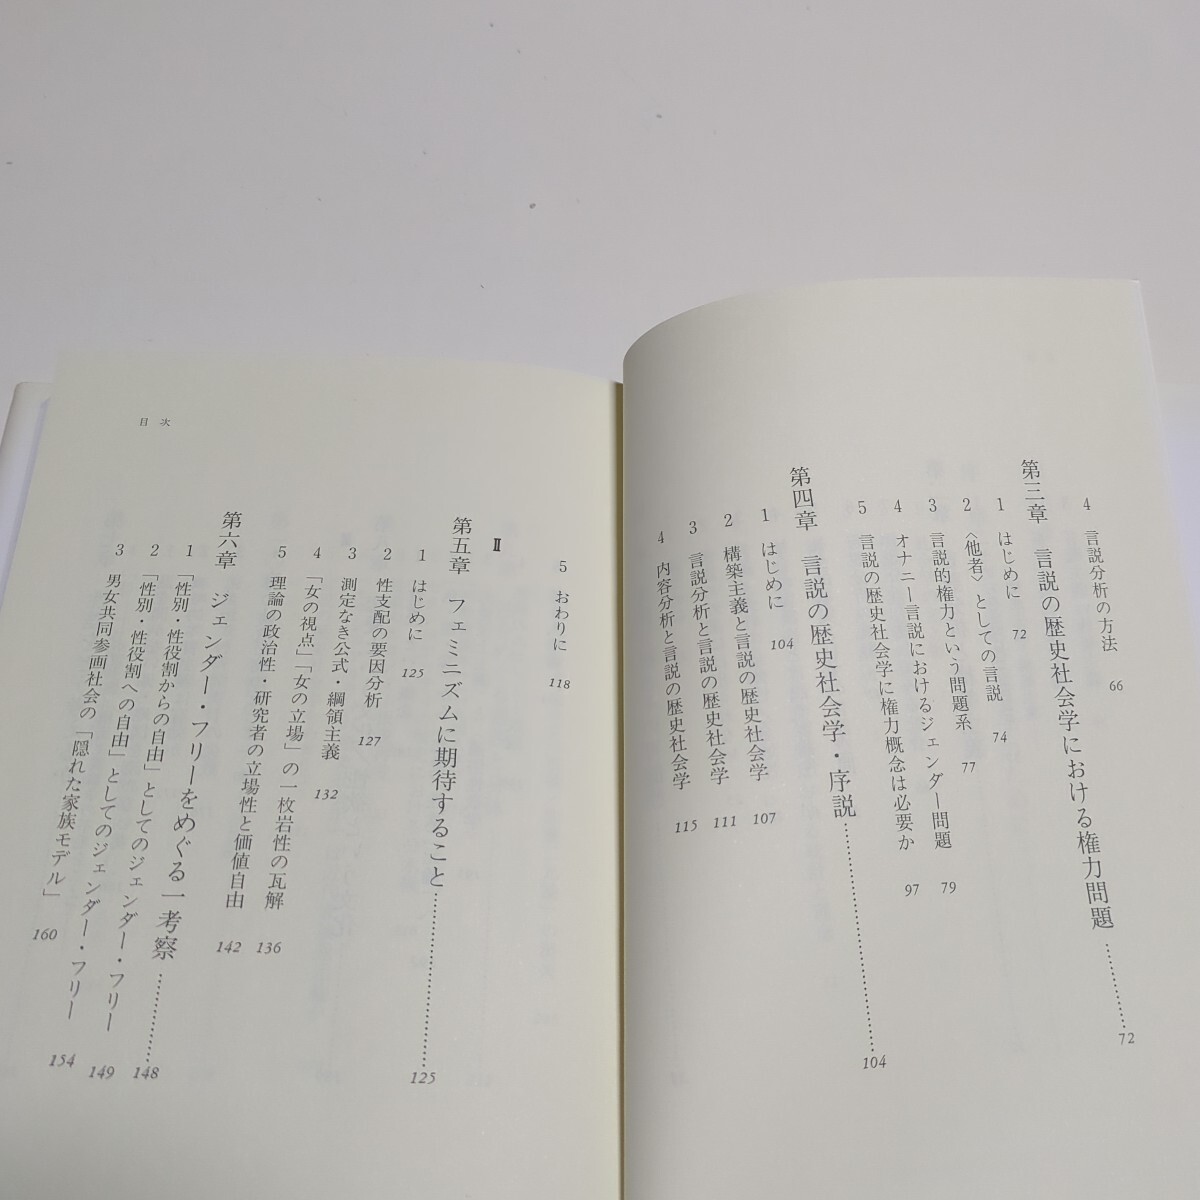 4 言説分析の方法 66
第三章 言説の歴史社会学における権力問題 72
1 はじめに 72
2 〈他者〉としての言説 74
3 言説的権力という問題系 77
4 オナニー言説におけるジェンダー問題 79
5 言説の歴史社会学に権力概念は必要か 97
第四章 言説の歴史社会学・序説 104
1 はじめに 104
2 構築主義と言説の歴史社会学 107
3 言説分析と言説の歴史社会学 111
4 内容分析と言説の歴史社会学 115
目次
5 おわりに 118
II
第五章 フェミニズムに期待すること 125
1 はじめに 125
2 性支配の要因分析 127
3 測定なき公式・綱領主義 132
4 「女の視点」「女の立場」の一枚岩性の瓦解 136
5 理論の政治性・研究者の立場性と価値自由 142
第六章 ジェンダー・フリーをめぐる一考察 148
1 「性別・性役割からの自由」としてのジェンダー・フリー 149
2 「性別・性役割への自由」としてのジェンダー・フリー 154
3 男女共同参画社会の「隠れた家族モデル」 160